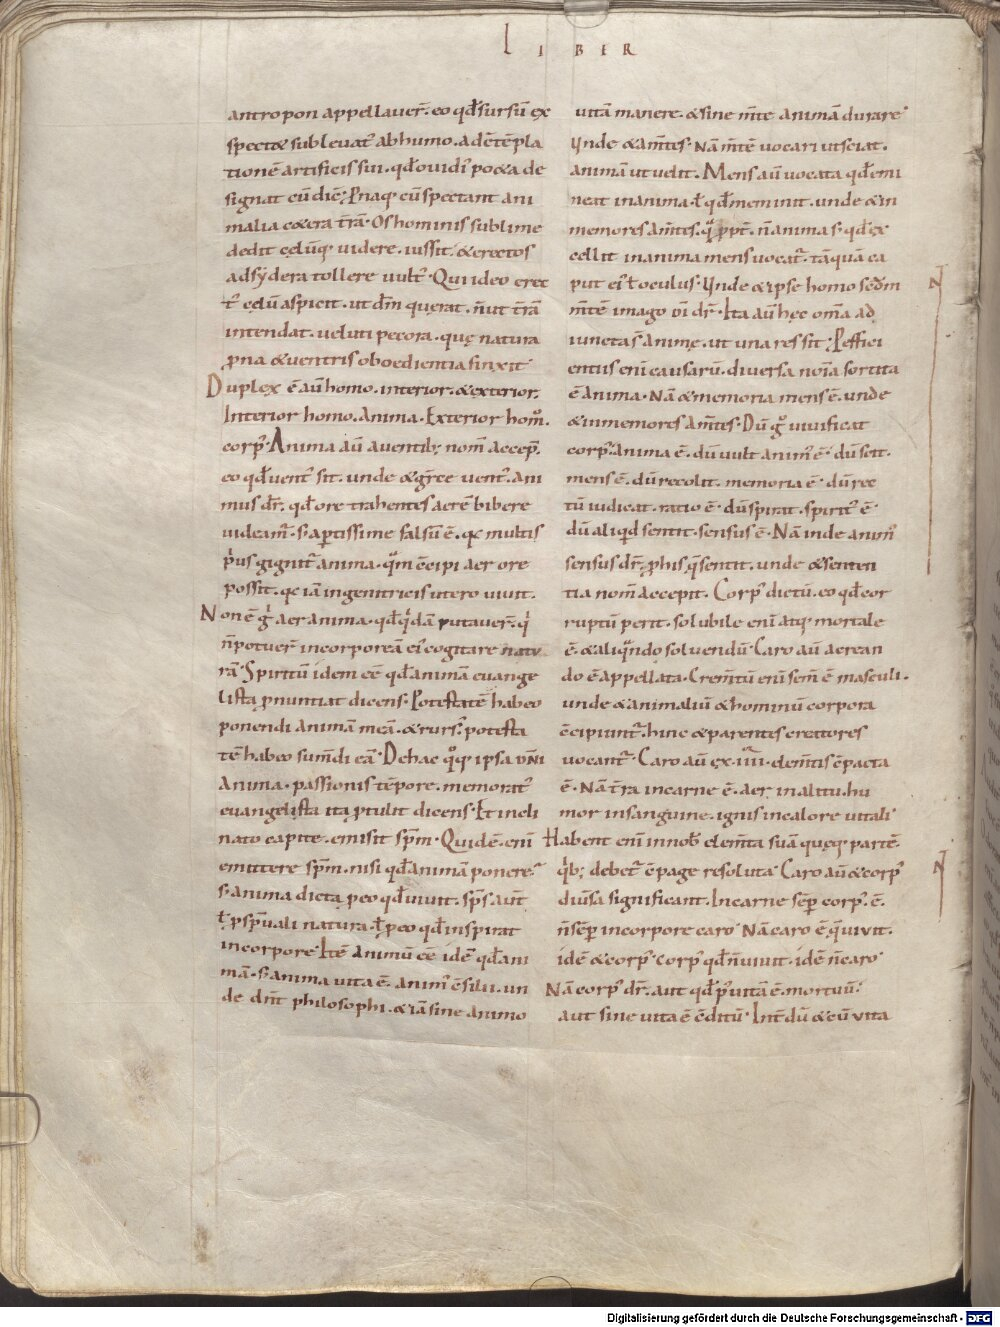 LIBER
antropon appellauer̄. eo qđ sursū ex
spectet subleuatꝰ ab humo. ad ctēpla
tionē artificis sui. qđ ouidiꝰ poeta de
signat cū diē; Pnaq; cū spectant ani
malia cetera t̄rā. Os hominis sublime
dedit cęlūq; uidere. iussit. & erectos
ad sydera tollere uultꝰ. Qui ideo erec
tꝰ cęlū aspicit. ut dm̄ querat. n̄ ut t̄rā
intendat. ueluti pecora. quę natura
ꝓna & uentris oboedientia finxit
Duplex ē aū homo. interior. & exterior.
Interior homo. Anima. Exterior homo.
corpꝰ. Anima aū a uentib; nom̄ accep̄.
eo qđ uentꝰ sit. unde & grece uentꝰ. ani
mus dr̄. qđ ore trahentes aerē bibere
uideamꝰ. s; aptissime falsū ē. qꝛ multo
pͥus gignitꝰ anima. quā ccipi aer ore
possit. qꝛ iā in genitricis utero uiuit.
Non ē gͦ aer anima. qđ qͥdā putauer̄. qͥ
n̄ potuer̄ incorporeā eiꝰ cogitare natu
rā. Spiritū idem eē qđ animā euange
lista ꝓnuntiat dicens. Potestatē habeo
ponendi animam meā. & rursꝰ. potesta
tē habeo sum̄di eā. De hac qͦq; ipsa dn̄i
Anima. passionis tēpore. memoratꝰ
euangelista ita ꝓtulit dicens. Et incli
nato capite. emisit sp̄m. Quid ē. enī
emittere sp̄m. nisi qđ animā ponere.
S; anima dicta ꝑ eo qđ uiuit. sp̄s. aūt
ł ꝑ sp̄uali natura. ł ꝑ eo qđ inspirat
in corpore. Itē animū eē idē qđ ani
mā. S; anima uita ē. animꝰ cсilii. un
de dn̄t philosophi. & iā sine animo
uitā manere. & sine m̄te animā durare.
Unde & am̄tes. Nā m̄tē uocari ut sciat.
animā ut uelit. Mens aū uocata qđ emi
neat in anima. ł qđ meminit. unde & in
memores am̄tes. qͣ ꝓpt̄. n̄ anima s; qđ ex
cellit in anima mens uocatꝰ. tāquā ca
put eiꝰ ł oculus. Unde & ipse homo scđm
m̄tē imago di dr̄. Ita aū hęc om̄a ad
iuncta s̄ animę. ut una res sit. P effici
entiis enī causarū. diuersa noīa sortita
ē anima. Nā & memoria mens ē. unde
& inmemores am̄tes. Dū gͦ uiuificat
corpꝰ. anima ē. dū uult animꝰ ē. dū scit.
mens ē. dū recolit. memoria ē. dū rec
tū iudicat. ratio ē. dū spirat. spiritꝰ ē.
dū aliqͥd sentit. sensus ē. Nā inde animꝰ
sensus dr̄. ꝑ his quę sentit. unde & senten
tia nom̄ accepit. Corpꝰ dictū. eo qđ cor
ruptū perit. solubile enī atq; mortale
ē. & aliqͣndo soluendū. Caro aū a crean
do ē appellata. Crem̄tū enī sem̄ ē masculi.
unde & animaliū & hominū corpora
ccipiuntꝰ. hinc & parentes creatores
uocantꝰ. Caro aū ex .iiii. elem̄tis cpacta
ē. Nā t̄ra in carne ē. aer in alitu. hu
mor in sanguine. ignis in calore uitali.
Habent enī in nob̄ elem̄ta suā quęq; partē.
qͥb; debetꝰ cpage resoluta. Caro aū & corpꝰ
diūsa significant. In carne sēp corpꝰ. ē.
n̄ sēp in corpore caro. Nā caro ē. quę uiuit.
idē & corpꝰ. corpꝰ qđ n̄ uiuit. idē n̄ caro.
Nā corpꝰ dr̄. aut qđ pꝰ uitā ē. mortuū.
aut sine uita ē cditū. Int̄dū & cū uita
Digitalisierung gefördert durch die Deutsche Forschungsgemeinschaft - DFG